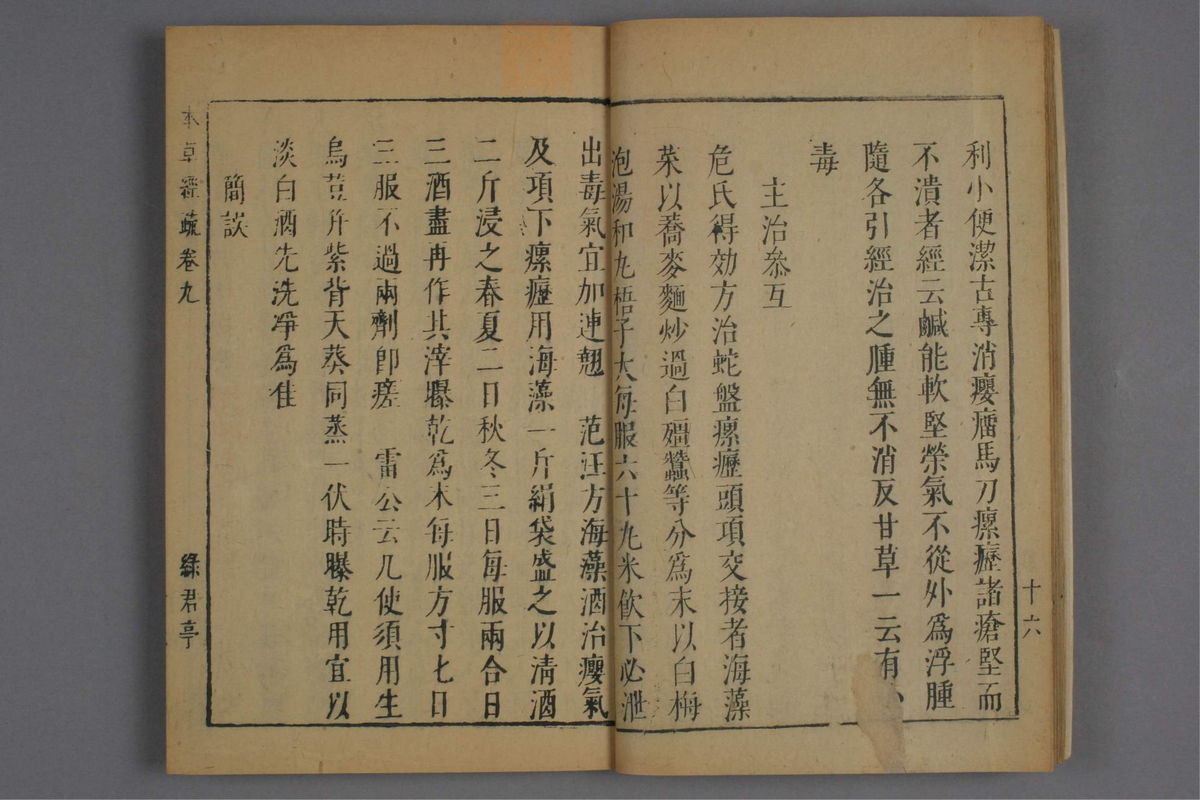 十六
利小便潔古專消癭瘤馬刀瘰癧諸瘡堅而
不潰者經云鹹能軟堅榮氣不從外爲浮腫
隨各引經治之腫無不消反甘草一云有小
毒
主治叅互
危氏得効方治蛇盤瘰癧頭項交接者海藻
菜以蕎麥麵炒過白殭蠶等分爲末以白梅
泡湯和丸梧子大每服六十丸米飲下必泄
出毒氣宜加連翹 范汪方海藻酒治癭氣
及項下瘰癧用海藻一斤絹袋盛之以清酒
二斤浸之春夏二日秋冬三日每服兩合日
三酒盡再作其滓曝乾爲末每服方寸匕日
三服不過兩劑卽瘥 雷公云凡使須用生
烏荳幷紫背天葵同蒸一伏時曝乾用宜以
淡白酒先洗凈爲佳
簡誤
本草經疏卷九 綠君亭